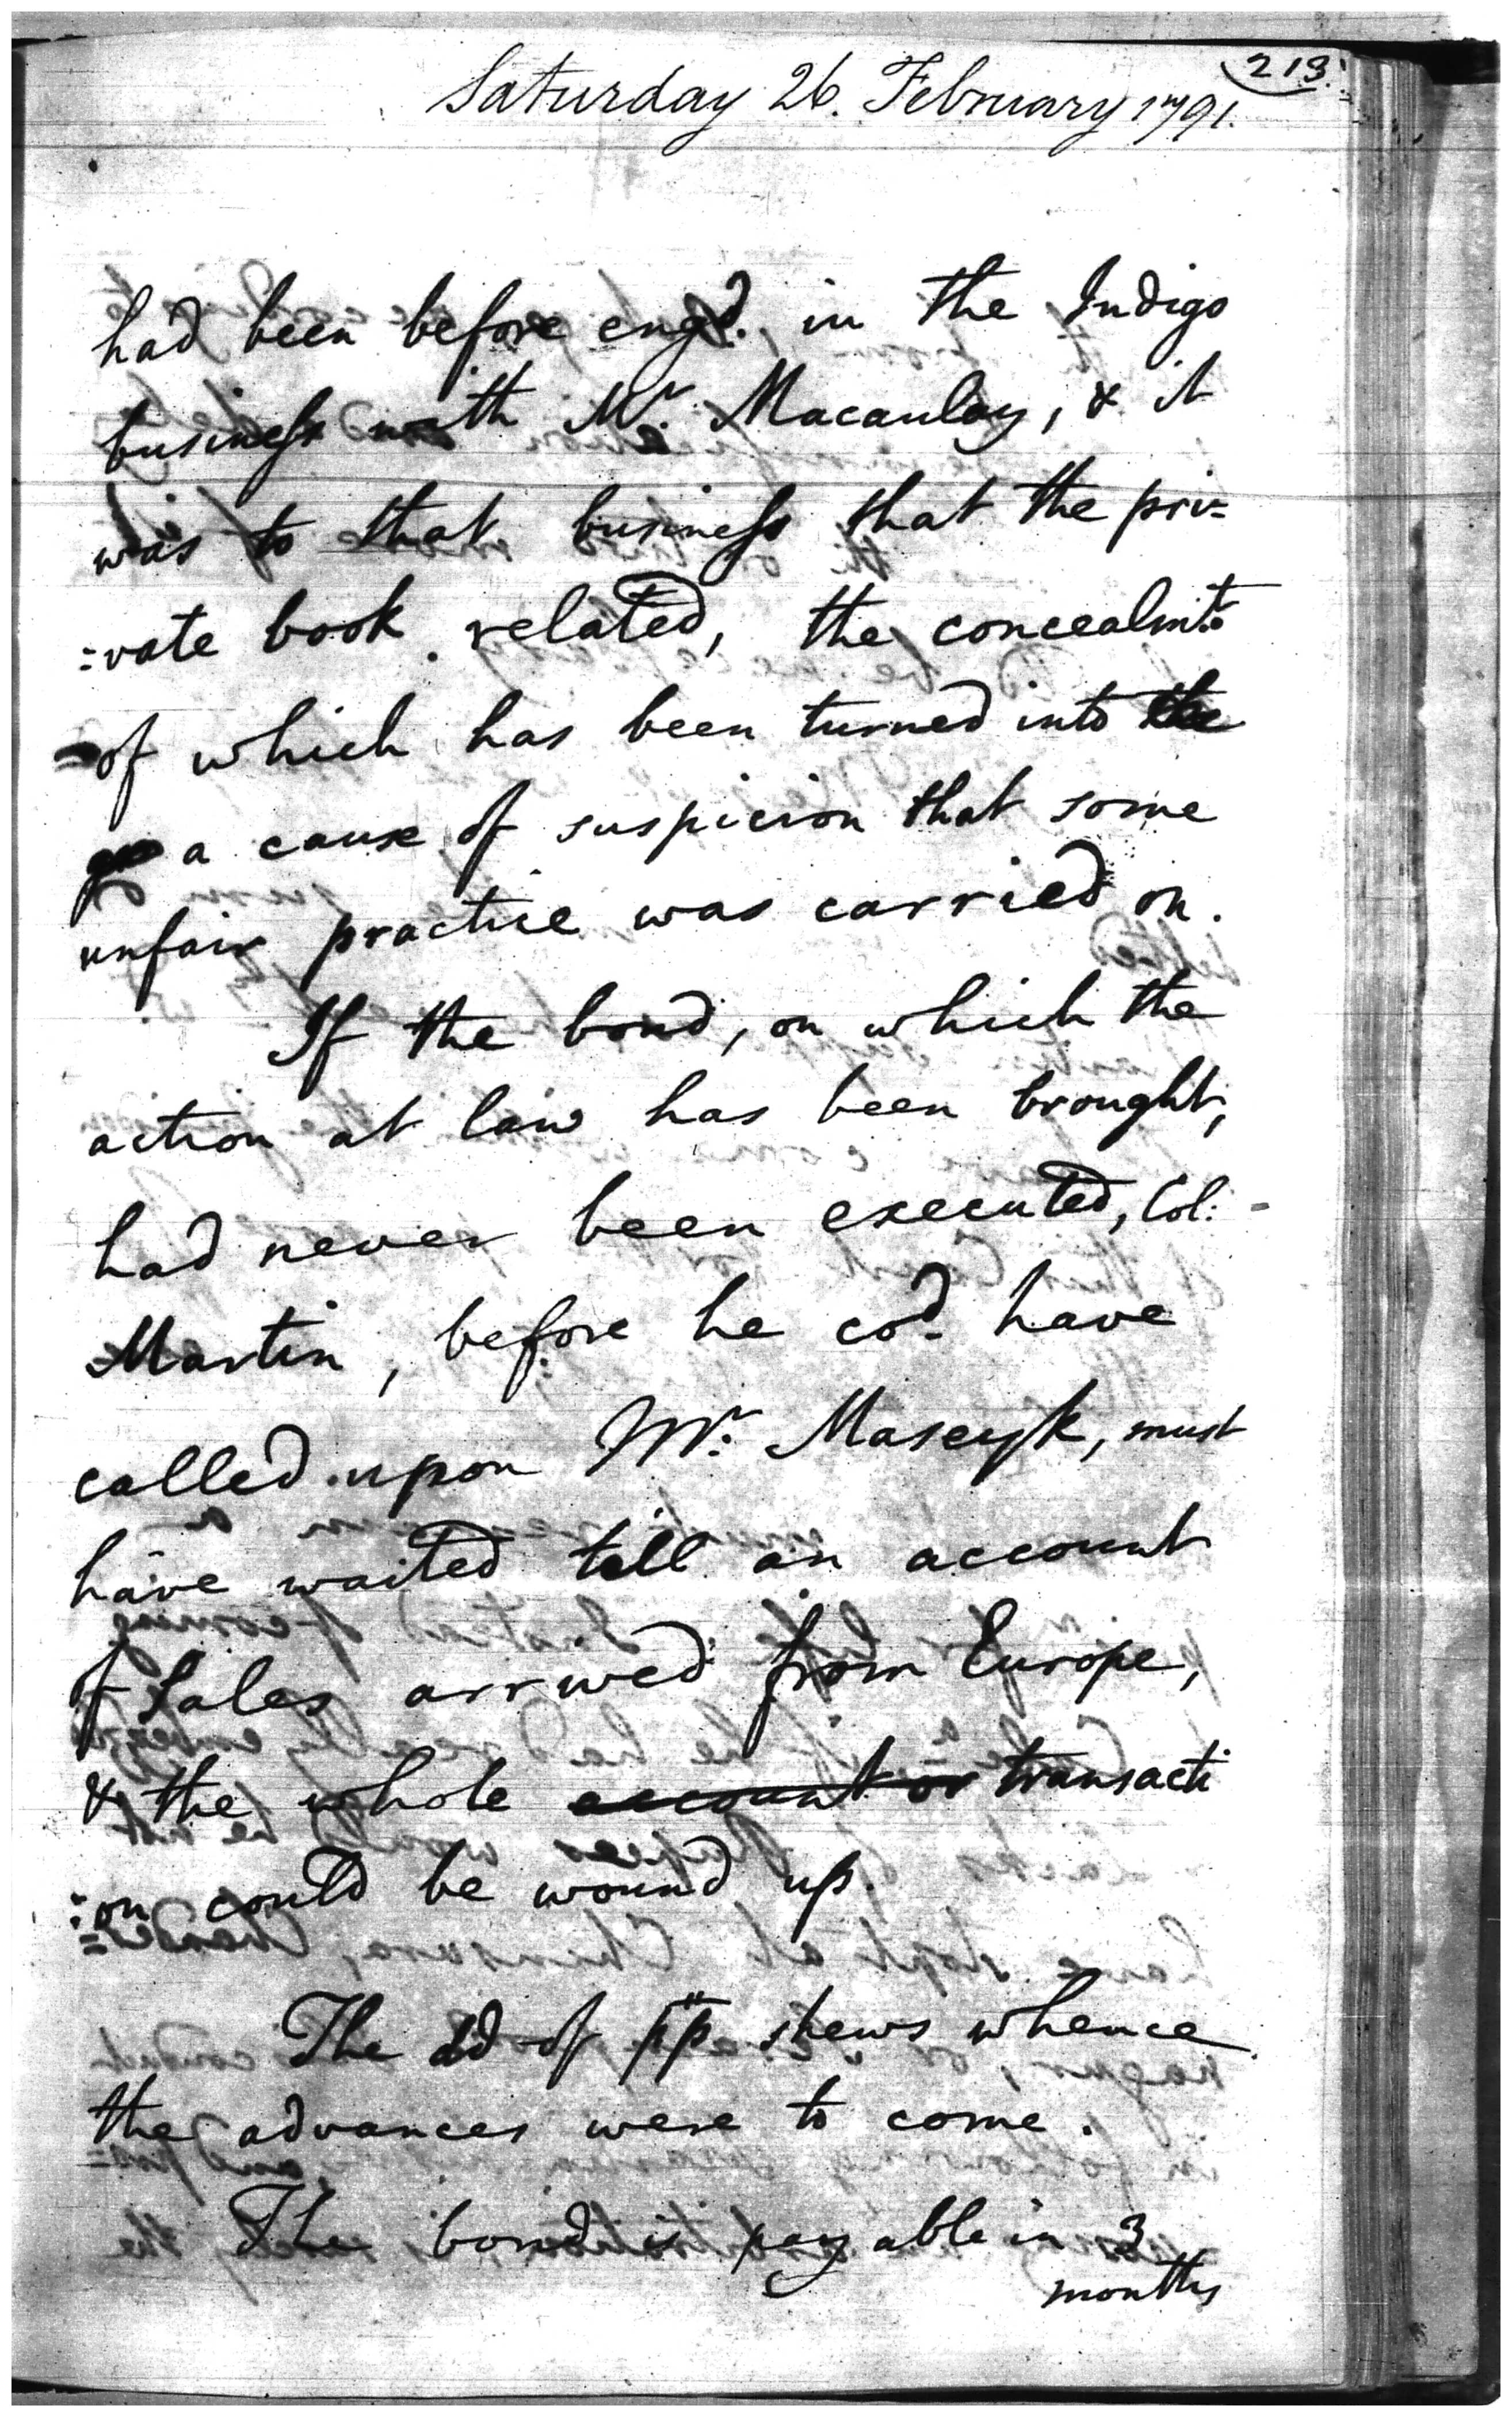 213
Saturday 26. February 1791.
had been before engd. in the Indigo
business with Mr. Macaulay, & it
was to that business that the pri=
:vate book related, the concealmt.
of which has been turned into the
a cause of suspicion that some
unfair practice was carried on.
If the bond, on which the
action at law has been brought,
had never been executed, Col:
Martin, before he cod. have
called upon Mr. Maseyk, must
have waited till an account
of Sales arrived from Europe,
& the whole account or transacti
:on could be wound up.
The dd of pp shews whence
the advances were to come.
The bond is payable in 3
months